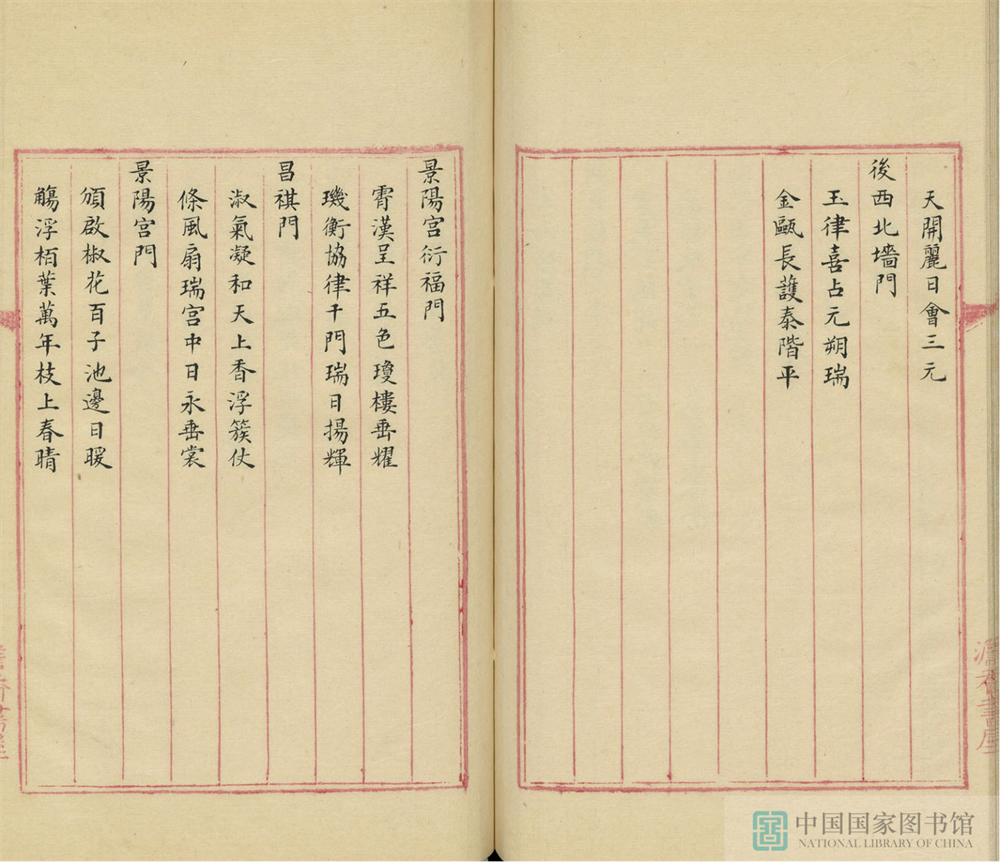 天開麗日會三元
後西北墻門
玉律喜占元朔瑞
金甌長護泰階平
景陽宮衍福門
霄漢呈祥五色瓊樓垂耀
璣衡協律千門瑞日揚輝
昌祺門
淑氣凝和天上香浮簇仗
條風扇瑞宮中日永垂裳
景陽宮門
頌啟椒花百子池邊日暖
觴浮栢葉萬年枝上春晴
中国国家图书馆
NATIONAL LIBRARY OF CHINA